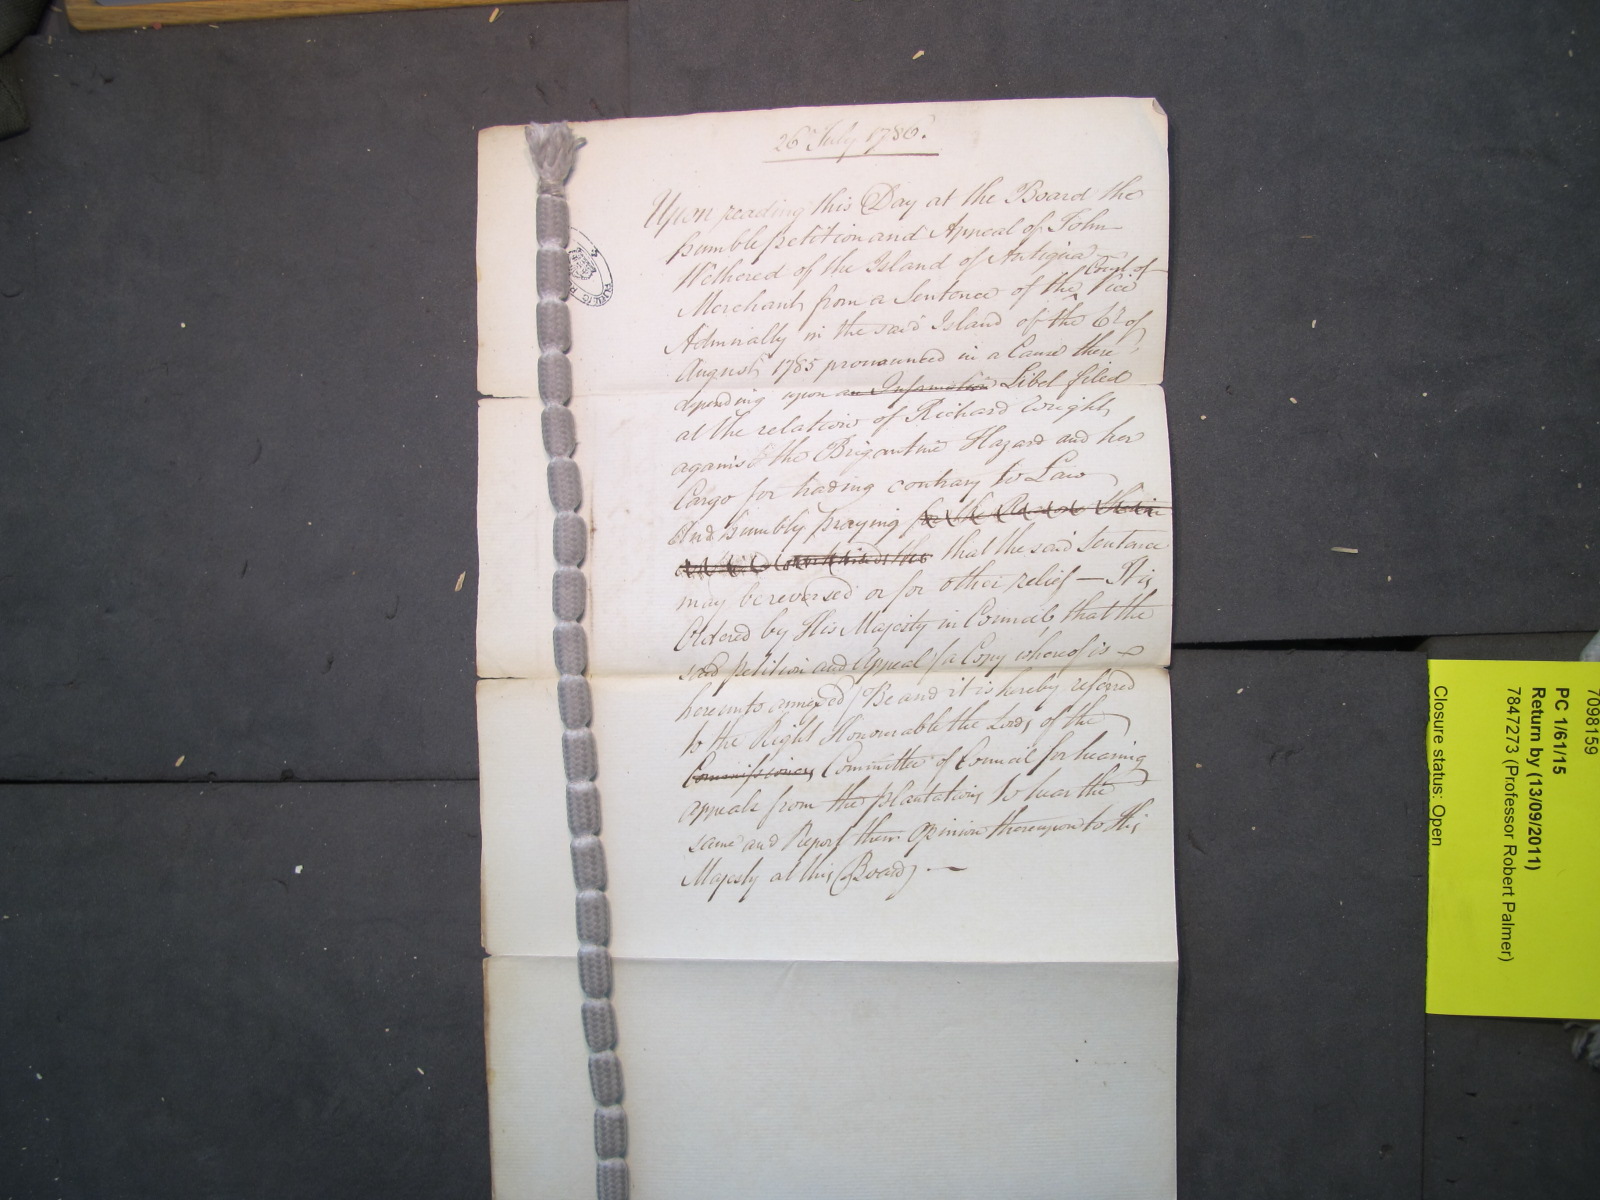 26th July 1786.
Upon reading this Day at the Board the
humble petition and Appeal of John
Wethered of the Island of Antigua
Merchant, from a Sentence of the Court of Vice
Admiralty in the said Island of the 6th of
August 1785 pronounced in a Cause there
depending upon an Information Libel filed
at the relation of Richard Wright
against the Brigantine Hazard and her
Cargo for trading contrary to Law
And humbly praying
that the said Sentence
may be reversed or for other relief — It is
Ordered by His Majesty in Council that the
said petition and Appeal (a Copy whereof is
hereunto annexed) Be and it is hereby referred
to the Right Honourable the Lords of the
Commissioners Committee of Council for hearing
appeals from the plantations to hear the
same and Report their Opinion thereupon to His
Majesty at this Board, —
PUBLIC R
7098159
PC 1/61/15
Return by (13/09/2011)
7847273 (Professor Robert Palmer)
Closure status: Open